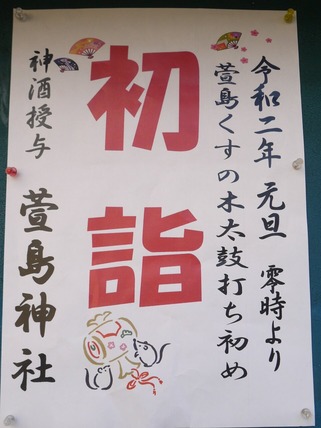 令和二年 元旦 零時より
萱島くすの木太鼓打ち初め
初詣
神酒授与
萱島神社